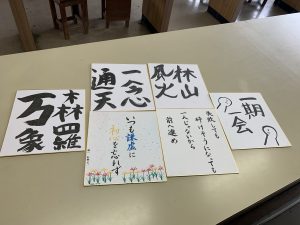 森羅
万象
一念
通天
風林
火山
一期
一会
いつも謙虚に
初心を忘れず
失敗しても
砕けそうになっても
一人じゃないから
前に進め